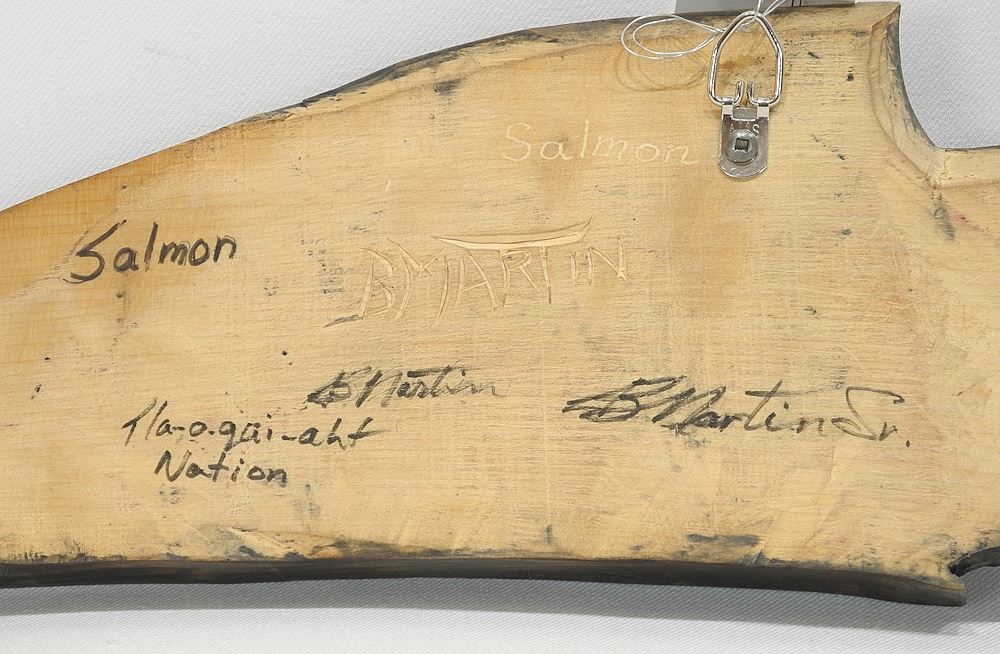 Salmon
Salmon
B MARTIN
B Martin
B Martin Sr.
Tla-o-qui-aht
Nation